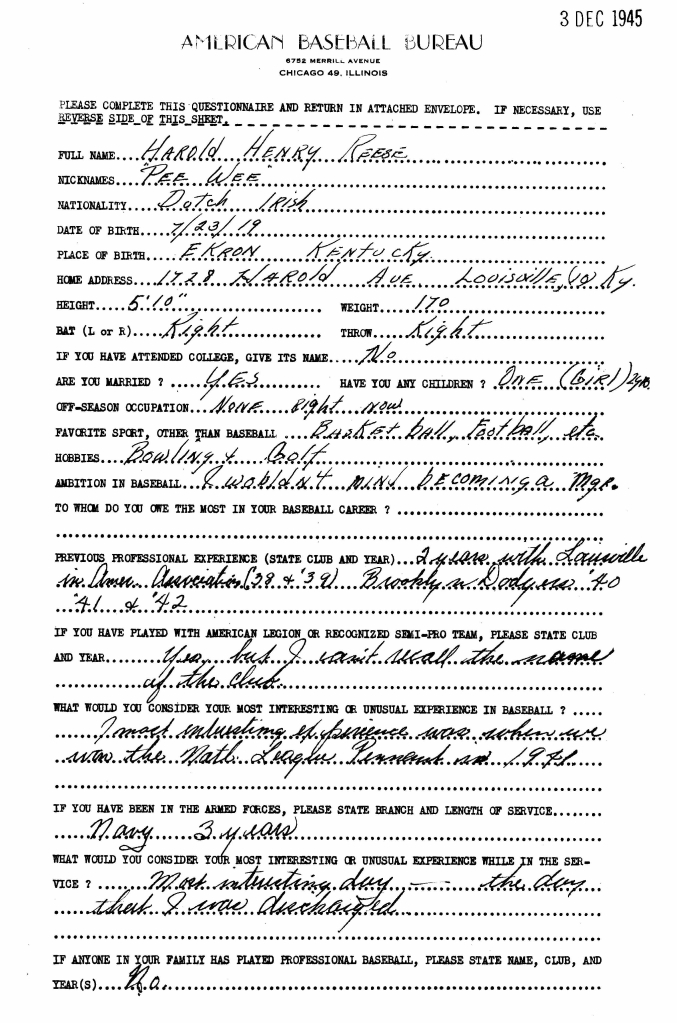 3 DEC 1945
AMERICAN BASEBALL BUREAU
6752 MERRILL AVENUE
CHICAGO 49, ILLINOIS
PLEASE COMPLETE THIS QUESTIONNAIRE AND RETURN IN ATTACHED ENVELOPE. IF NECESSARY, USE
REVERSE SIDE OF THIS SHEET.
FULL NAME....HAROLD HENRY REESE
NICKNAMES...."PEE WEE"
NATIONALITY....Dutch Irish
DATE OF BIRTH....7/23/19
PLACE OF BIRTH....EKRON KENTUCKY.
HOME ADDRESS....1728 HAROLD AVE LOUISVILLE, (10) Ky.
HEIGHT....5'10" WEIGHT....170
BAT (L or R)....Right THROW....Right
IF YOU HAVE ATTENDED COLLEGE, GIVE ITS NAME....No
ARE YOU MARRIED ? ....YES.... HAVE YOU ANY CHILDREN ? ONE (GIRL) 2yrs.
OFF-SEASON OCCUPATION....NONE right now
FAVORITE SPORT, OTHER THAN BASEBALL ....BASKET ball, Football, etc.
HOBBIES....Bowling & Golf
AMBITION IN BASEBALL....I wouldn't mind becoming a Mgr.
TO WHOM DO YOU OWE THE MOST IN YOUR BASEBALL CAREER ?
PREVIOUS PROFESSIONAL EXPERIENCE (STATE CLUB AND YEAR)....2 years with Louisville
in Amer. Association ('38 & '39) Brooklyn Dodgers '40
'41 & '42
IF YOU HAVE PLAYED WITH AMERICAN LEGION OR RECOGNIZED SEMI-PRO TEAM, PLEASE STATE CLUB
AND YEAR....Yes, but I can't recall the name
of the club.
WHAT WOULD YOU CONSIDER YOUR MOST INTERESTING OR UNUSUAL EXPERIENCE IN BASEBALL ? .....
I most interesting experience was when we
won the Natl. League Pennant in 1941.
IF YOU HAVE BEEN IN THE ARMED FORCES, PLEASE STATE BRANCH AND LENGTH OF SERVICE........
Navy 3 years
WHAT WOULD YOU CONSIDER YOUR MOST INTERESTING OR UNUSUAL EXPERIENCE WHILE IN THE SER-
VICE ? ....Most interesting day — the day
that I was discharged
IF ANYONE IN YOUR FAMILY HAS PLAYED PROFESSIONAL BASEBALL, PLEASE STATE NAME, CLUB, AND
YEAR(S)....No.